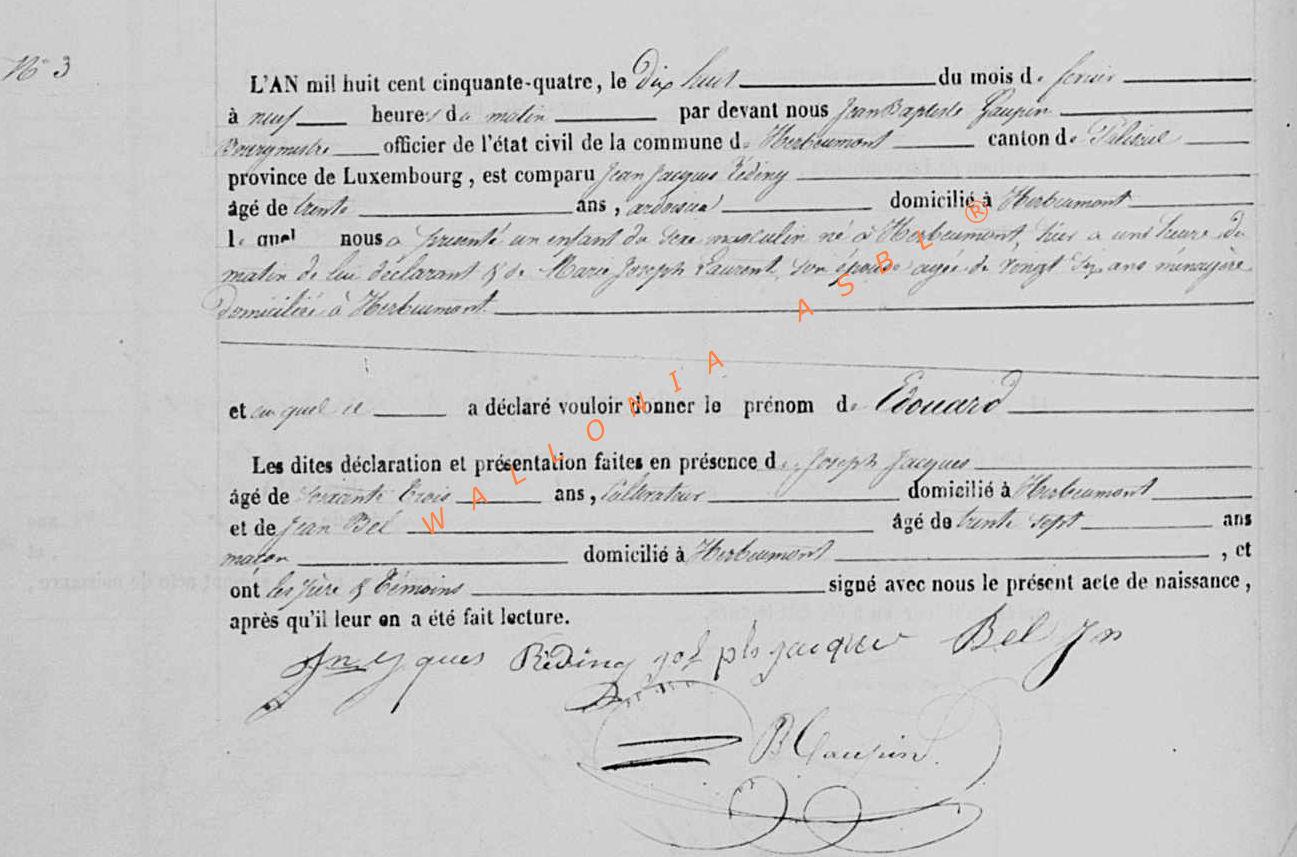 N° 3
L'AN mil huit cent cinquante-quatre, le Dix huit du mois de fevrier
à neuf heures du matin par devant nous Jean Baptiste
Bourgmestre officier de l'état civil de la commune d. Herbeumont canton de Paliseul
province de Luxembourg, est comparu Jean Jacques Réding
âgé de trente ans, domicilié à Herbeumont
lequel nous a présenté un enfant du sexe masculin né à Herbeumont, hier a une heure du
matin de lui déclarant & de Marie Joseph Laurent, son épouse agée de vingt six ans ménagère
domiciliée à Herbeumont
et auquel il a déclaré vouloir donner le prénom d. Edouard
Les dites déclaration et présentation faites en présence de Joseph Jacques
âgé de soixante trois ans, Cultivateur domicilié à Herbeumont
et de Jean Bel âgé de trente sept ans
maçon domicilié à Herbeumont, et
ont les père & témoins signé avec nous le présent acte de naissance,
après qu'il leur en a été fait lecture.
Réding jacques Bel Jn
WALLONIA ASBL ®